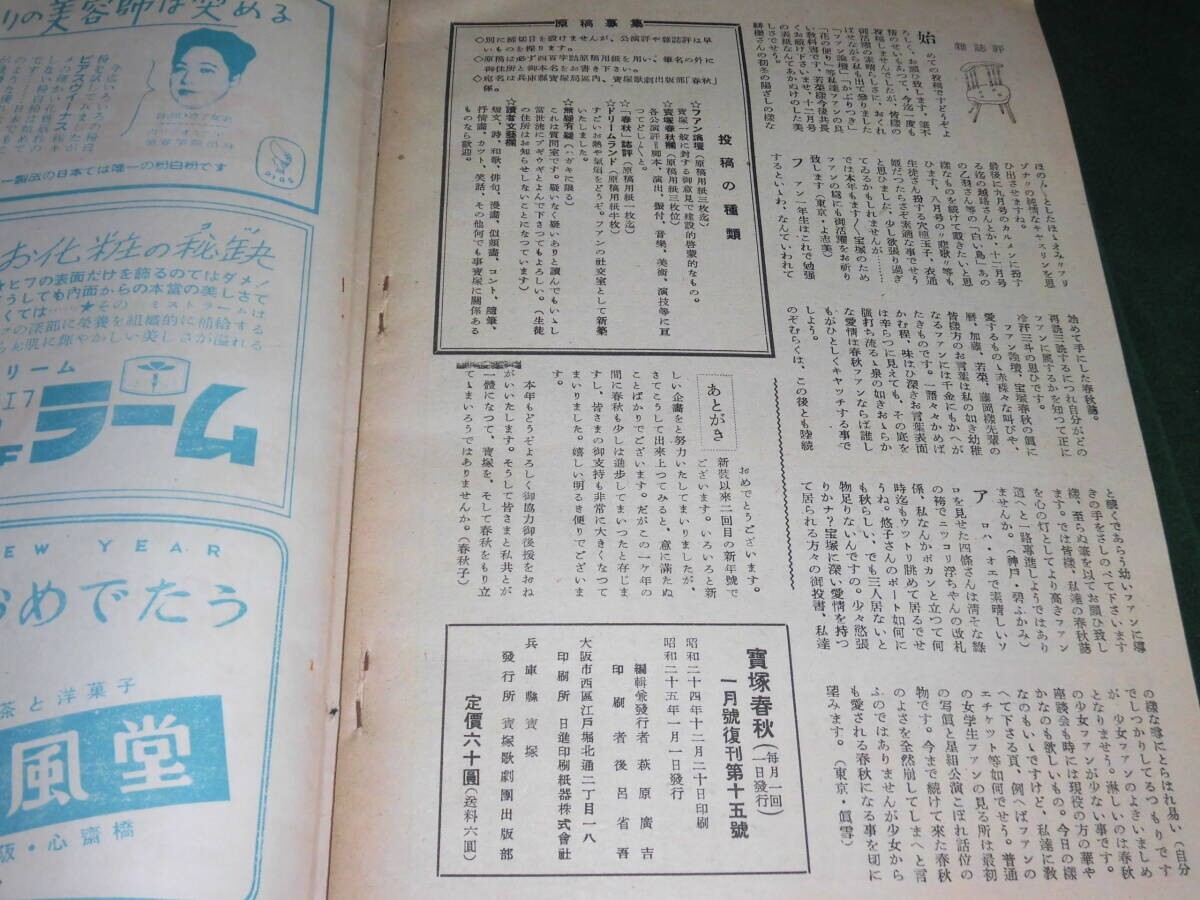 雜誌評
始めての投稿ですどうぞよ
ろしく、お願ひ致します。筆不
情のせいもあつて、今迄一度も
投稿しませんでしたが、皆様の
御活躍の素晴らしさに、おくれ
ばせながら私も出て參りました
「ファン論壇」「かぶりつき」
「花の便り」等私達ファンの良
い教科書です、若菜様今後共長
くお願け下さいませ、十二月号
の表紙なんてあかぬけのした美
しさでせう。
ほのぼのとしたほゝえみ〃フリ
ゾナ〃の純情なキャスリンを思
ひ出させますね。
最後に九月号のカルメンに扮す
る迄の越路さんとか、十二月号
の乙羽さん等の「白い鳥」あの
様なものを続けて戴きたいと思
ひます、八月号の〃悲歌〃等も
生徒さん扮する穴照玉子、衣通
姫だつたらさぞ素適な事でせう
と思ひました、少し欲張り過ぎ
てゐるかもしれませんが……
では本年もます〳〵宝塚のため
ファンの為にも御活躍をお祈り
致します（東京・よ志美）
ファン一年生はこれで勉強
するといゝわ、なんていわれて
始めて手にした春秋誌。
再読三読するにつれ自分がどの
ファンに属するかを知つて正に
冷汗三斗の思ひです。
ファン論壇、宝塚春秋の眞に
愛するもの〻赤裸々な叫びや、
暦、加藤、若菜、藤岡様先輩の
皆様方のお言葉は私の如き幼稚
なるファンには千金にもかへが
たきものです。一語々々かめば
かむ程、味はひ深きお言葉表面
は辛らつに見えても、その底を
脈打ち流るゝ泉の如きおゝらか
な愛情は春秋ファンならば誰し
もがひとしくキャッチする事で
しよう。
のぞむらくは、この後とも陸続
と続くであらう幼いファンに導
きの手をさしのべて下さいます
様、至らぬ筆を以てお願ひ致し
ます。では皆様、私達の春秋誌
を心の灯としてより高きファン
道へと一路專進しようではあり
ませんか。（神戸・碧ふかみ）
アロハ・オエで素晴しいソ
ロを見せた四條さんは清そな綠
の袴でニッコリ浮ちやんの改札
係、私なんかポカンと立つて何
時迄もウットリ眺めて居るでせ
うね。悠子さんのポート如何に
も秋らしい、でも三人居ないと
物足りないんですの。少々慾張
りかナ？宝塚に深い愛情を持つ
て居られる方々の御投書、私達
の様な雰にとらはれ易い（自分
でしつかりしてるつもりです
が）少女ファンのよきいましめ
となりませう。淋しいのは春秋
の少女ファンが少ない事です。
座談会も時には現役の方の華や
かなのも欲しいもの。今日の樣
なのもいゝですけど、私達に敎
へて下さる頁、例へばファンの
エチケット等如何でせう。普通
の女学生ファンの見る所は最初
の写眞と星組公演こぼれ話位の
物です。今まで続けて来た春秋
のよさを全然崩してしまへと言
ふのではありませんが少女から
も愛される春秋になる事を切に
望みます。（東京・眞雪）
原稿募集
◇別に締切日を設けませんが、公演評や雜誌評は早
いものを採ります。
◇原稿は必ず四百字詰原稿用紙を用い、筆名の外に
御住所と御本名をお書き下さい。
◇宛名は兵庫縣寶塚局區內、寶塚歌劇出版部「春秋」
係。
投稿の種類
☆ファン論壇（原稿用紙三枚迄）
寶塚一般に對する御意見で建設的啓蒙的なもの。
☆寶塚春秋欄（原稿用紙三枚位）
各公演評＝脚本、演出、振付、音樂、美術、演技等に亘
つてどしどしと。
☆「春秋」誌評（原稿用紙一枚迄）
☆ドリームランド（原稿用紙半枚）
すごいお熱や氣焰をどうぞ。ファンの社交室として新築
いたしました。
☆無疑有疑（ハガキに限る）
これは質問室です。疑いなく疑いありと讀んでもいゝし
當世流にブギウギとよんで下さつてもよろしい。（生徒
の住所はお知らせしないことになつています）
☆讀者文藝欄
短文、詩、和歌、俳句、漫畫、似顏畫、コント、隨筆、
抒情畵、カット、笑話、その他何でも事寶塚に關係ある
ものなら歡迎。
あとがき
おめでとうございます。
新裝以來二回目の新年號で
ございます。いろいろと新
しい企畫をと努力いたしてまいりましたが、
さてこうして出來上つてみると、意に滿たぬ
ことばかりでございます。だがこの一ケ年の
間に春秋も少しは進歩してまいつたと存じま
すし、皆さまの御支持も非常に大きくなつて
まいりました。嬉しい明るき便りでございま
す。
本年もどうぞよろしく御協力御後援をおね
がいいたします。そうして皆さまと私共とが
一體になつて、寶塚を、そして春秋をもり立
てゝまいろうではありませんか。（春秋子）
寶塚春秋（毎月一回一日發行）
一月號復刊第十五號
昭和二十四年十二月二十日印刷
昭和二十五年一月一日發行
編輯兼發行者 萩原廣吉
印刷者 後呂省吾
大阪市西區江戶堀北通二丁目一八
印刷所 日進印刷紙器株式會社
兵庫縣寶塚
發行所 寶塚歌劇團出版部
定價六十圓（送料六圓）
りの美容師は奨める
一製品の日本では唯一の粉白粉です
お化粧の秘訣
★ヒフの表面だけを飾るのではダメ！
うしても内面からの本當の美しさで
くては……★その一ミストラームは
フの深部に榮養を組織的に補給する
らお肌に輝やかしい美しさが溢れる
リーム
NEW YEAR
おめでたう
茶と洋菓子
風堂
阪・心齋橋